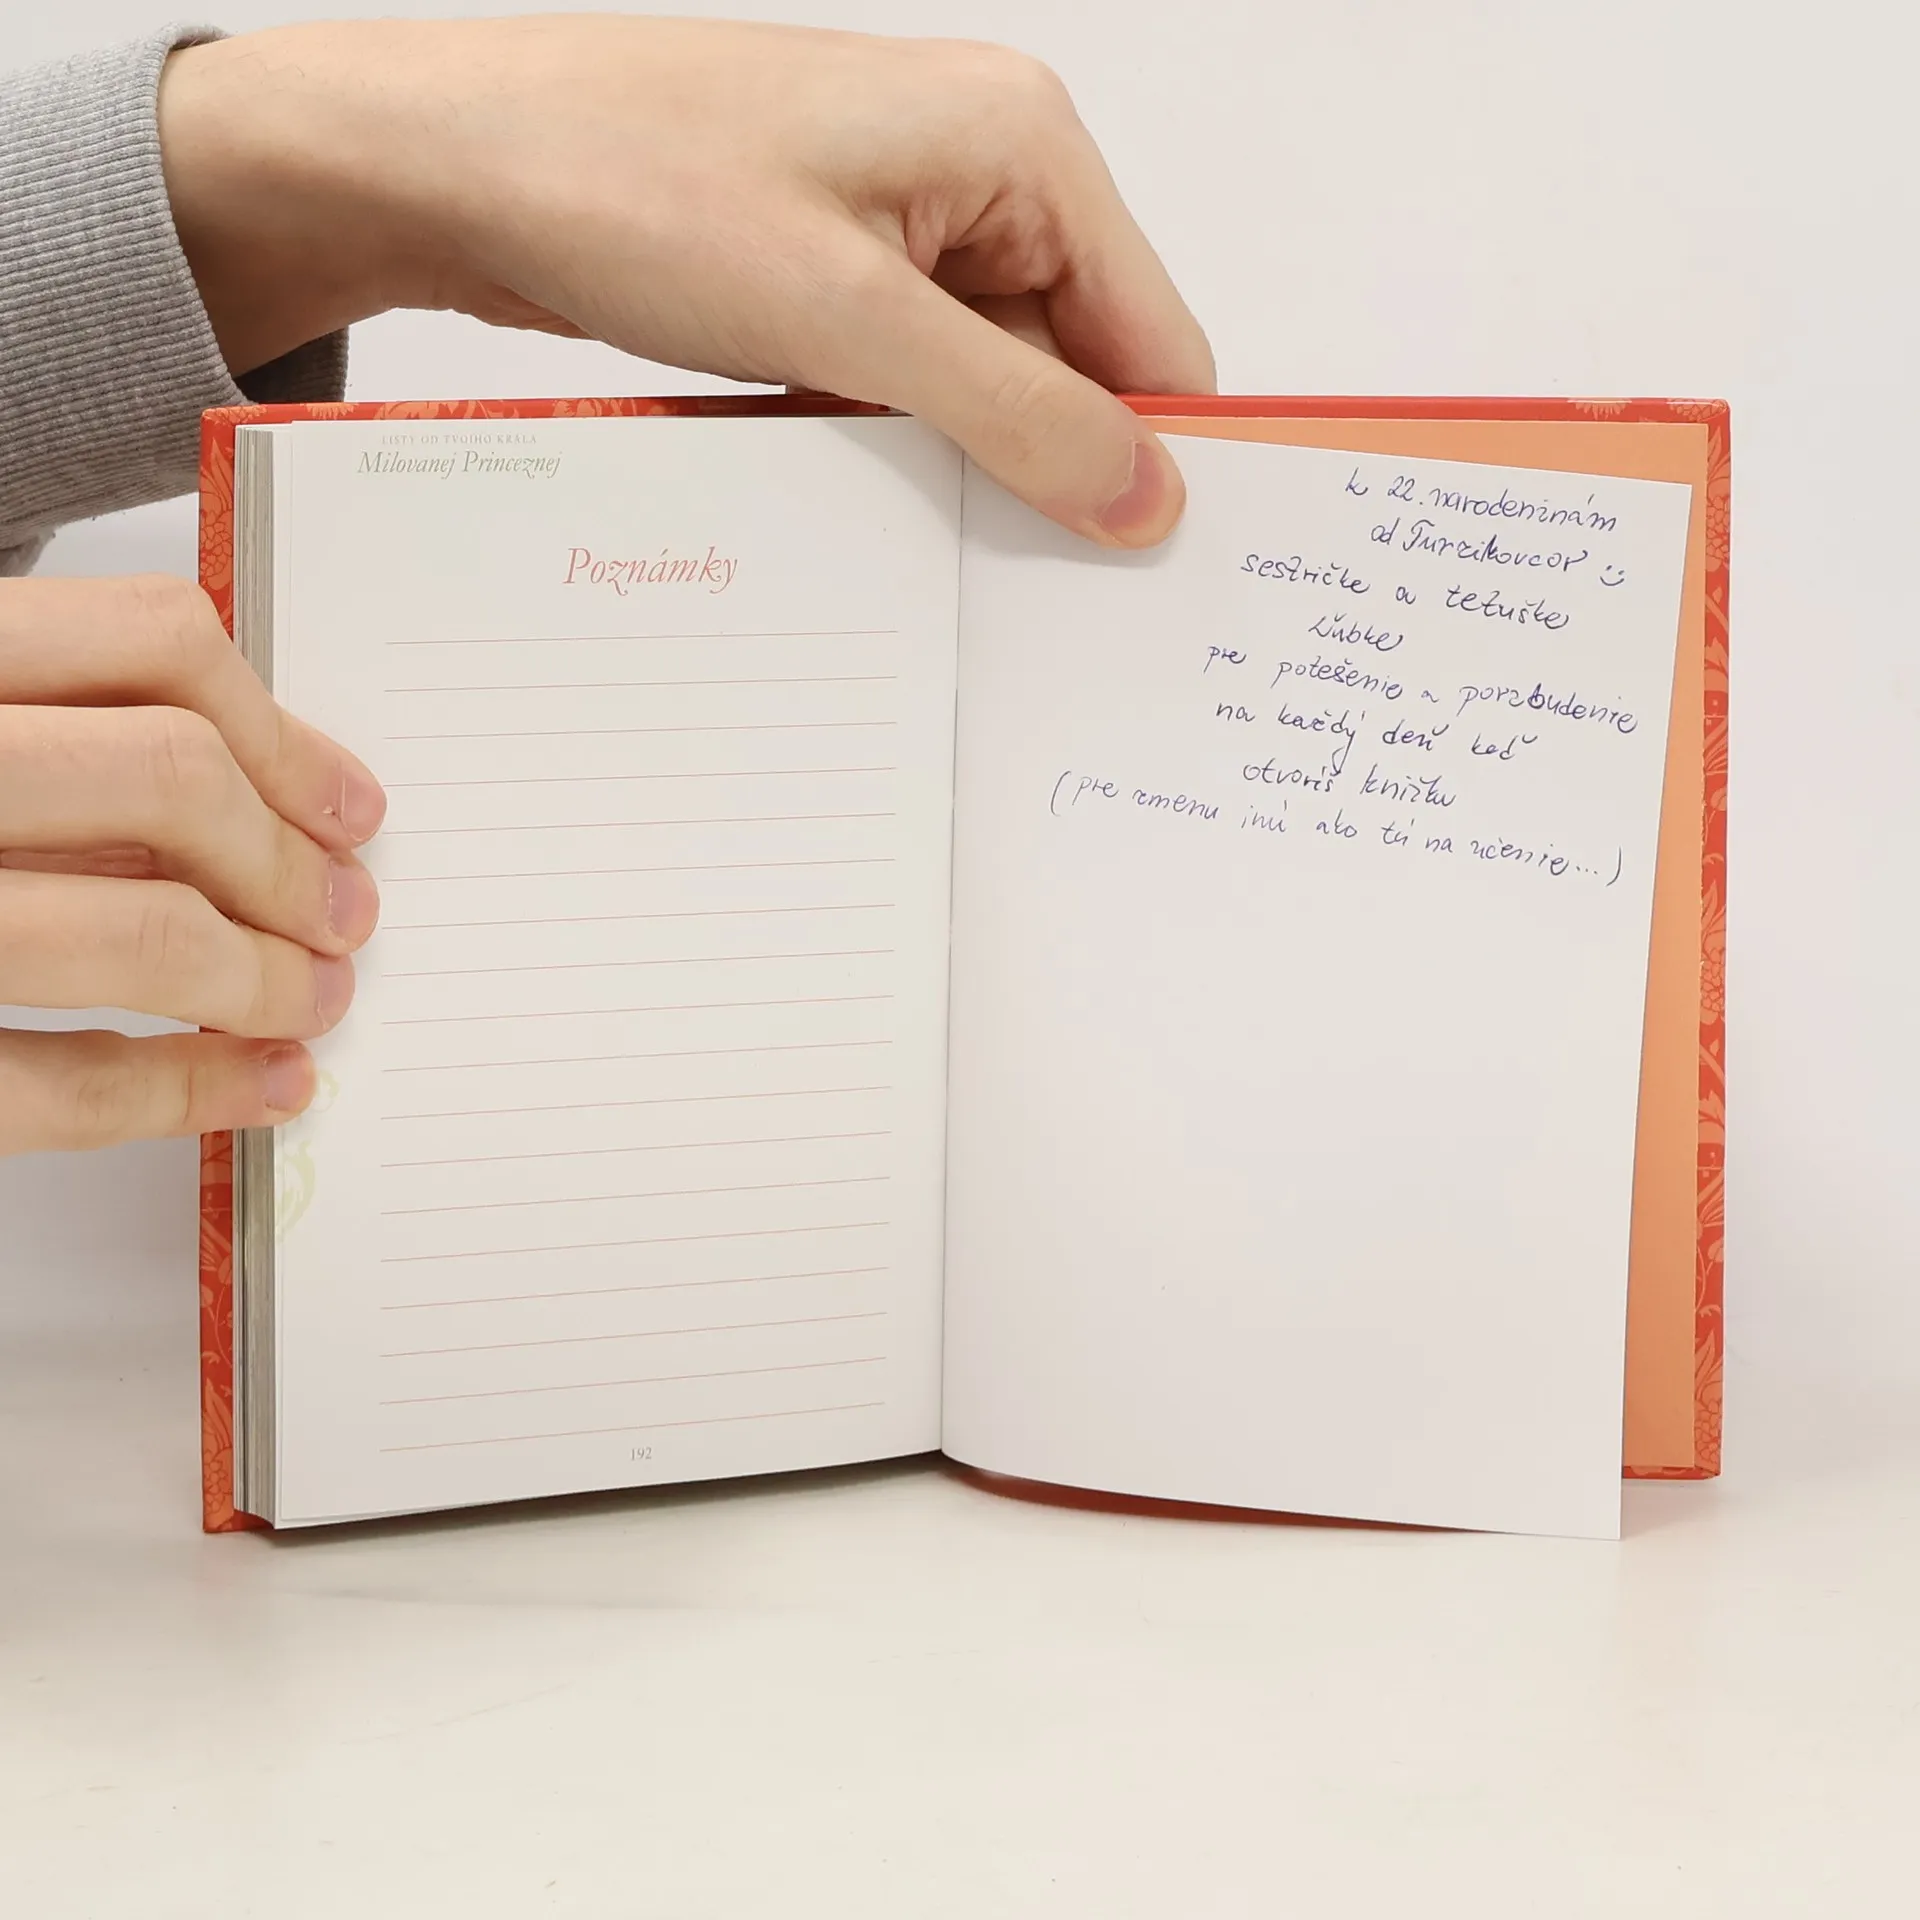 LISTY OD TVOJHO KRÁĽA
Milovanej Princeznej
Poznámky
192
k 22. narodeninám
od Turzikovcov :)
sestričke a tetuške
Ľubke
pre potešenie a porzbudenie
na každý deň keď
otvoríš knižku
(pre zmenu inú ako tú na učenie...)